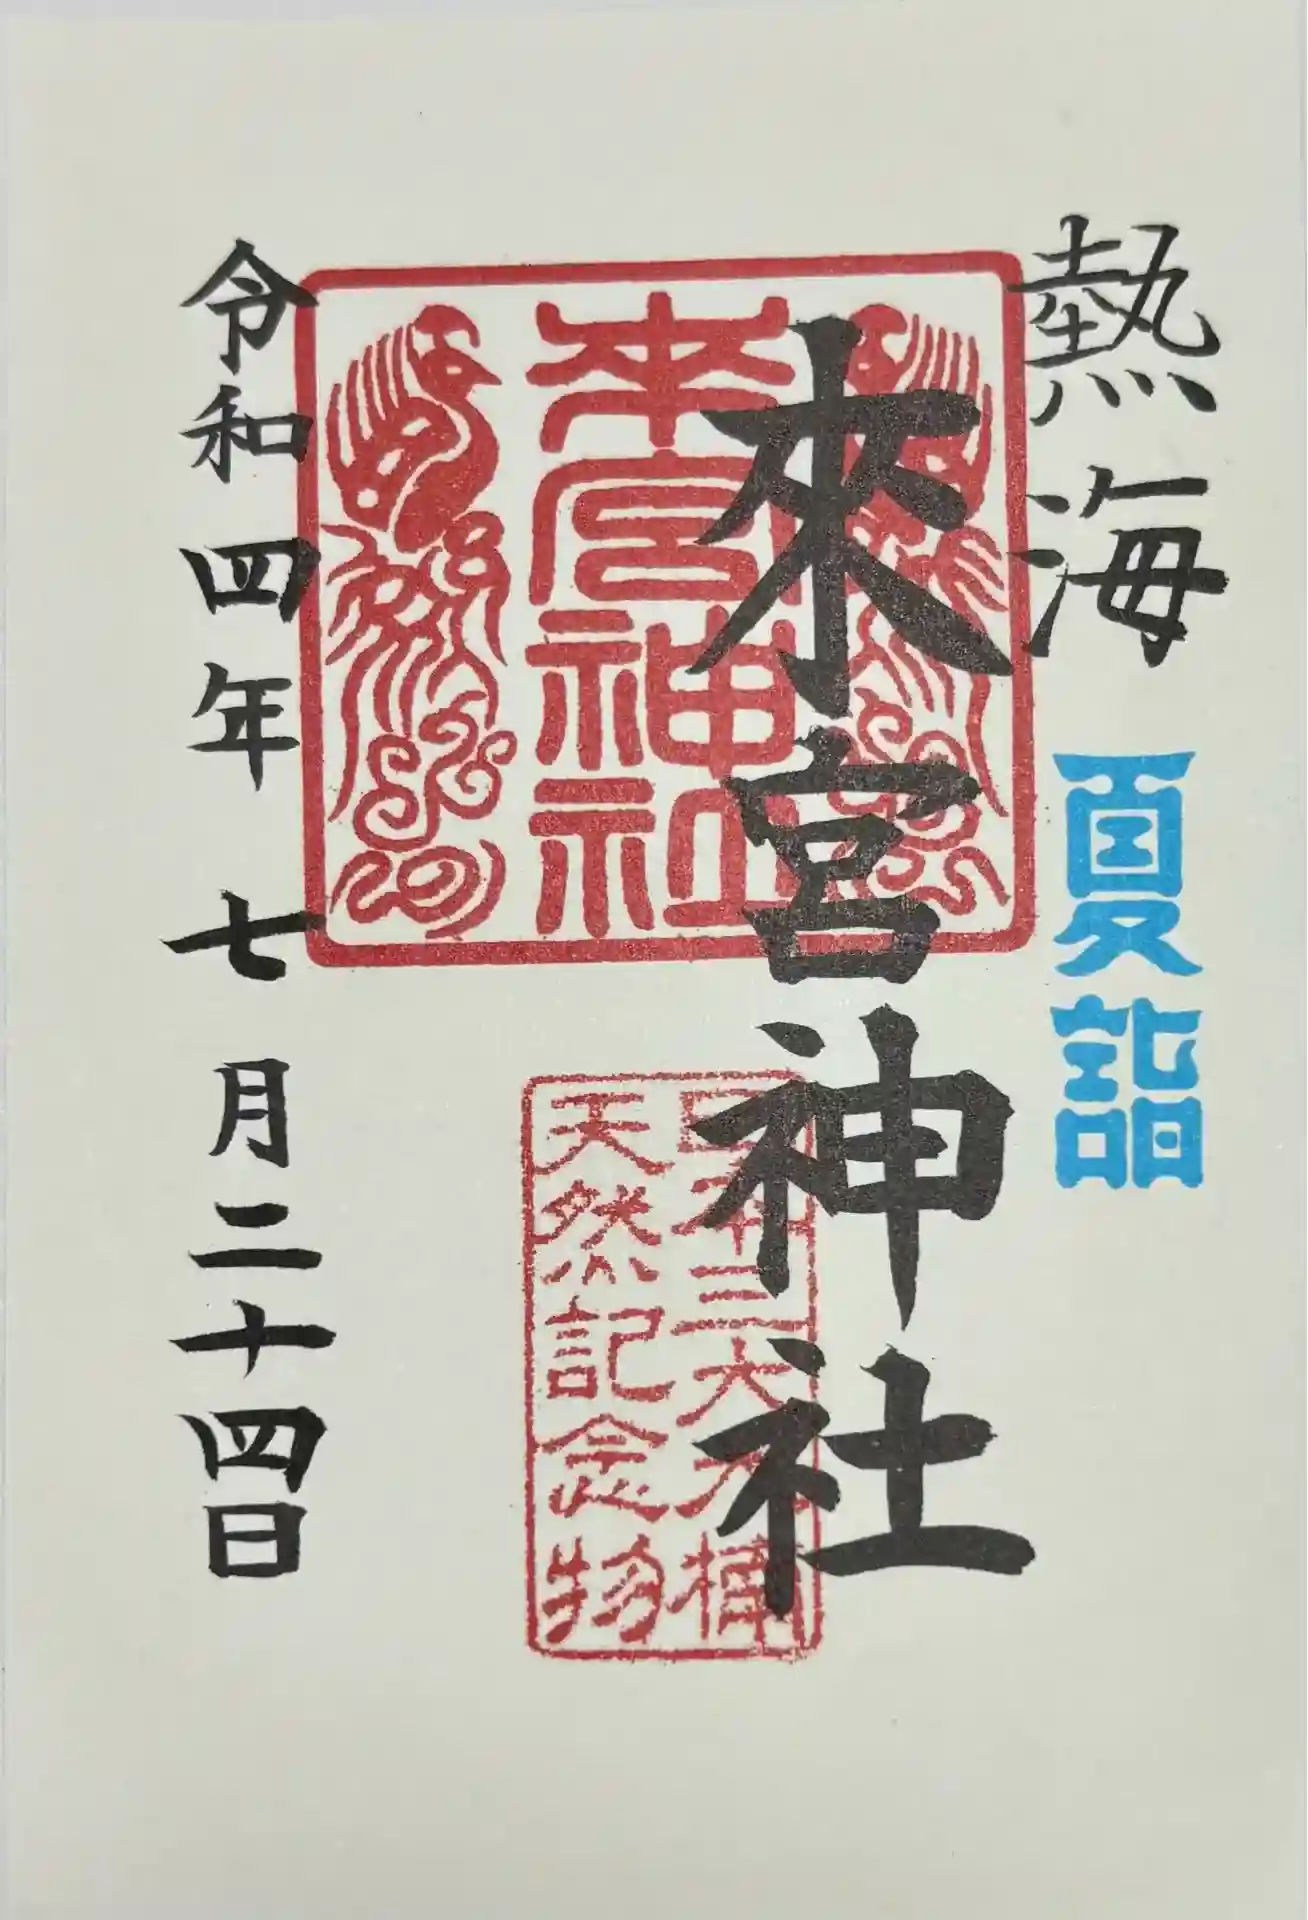 熱海
夏詣
來宮神社
來宮神社
日本三大大楠
天然記念物
令和四年 七月二十四日